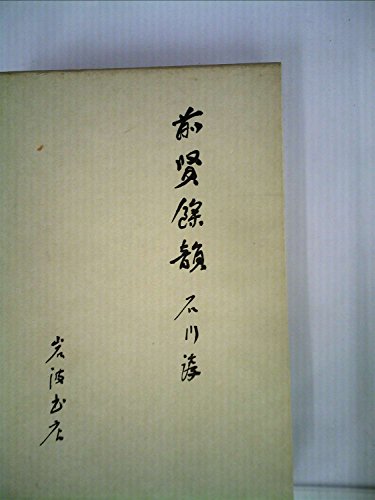 前賢餘韻 石川淳
岩波书店